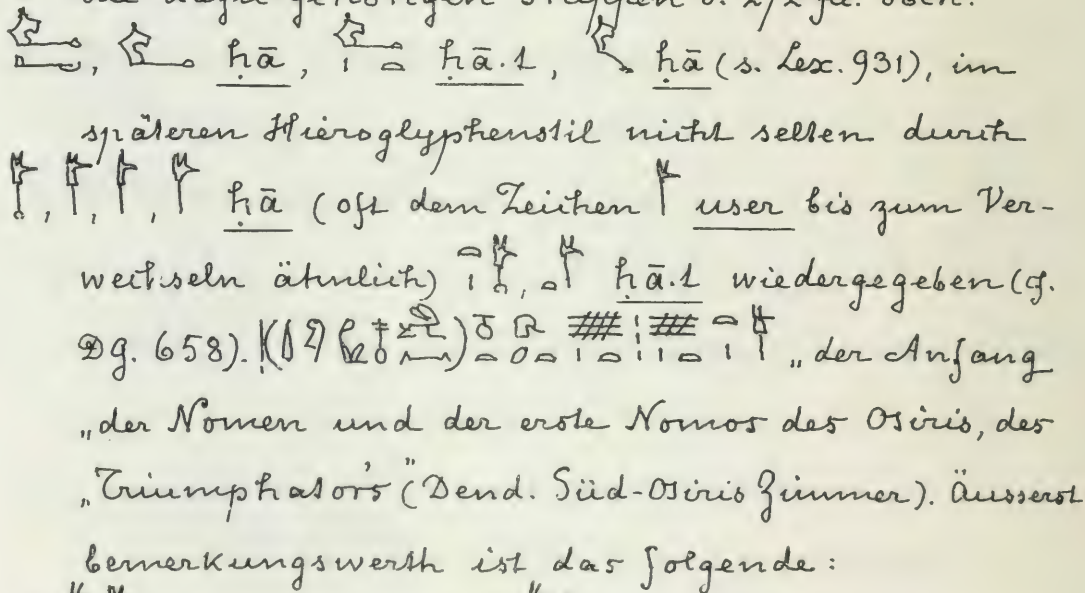 ḥā, ḥā.t, ḥā (s. Lex. 931), im
späteren Hieroglyphenstil nicht selten durch
ḥā (oft dem Zeichen user bis zum Ver-
wechseln ähnlich) ḥā.t wiedergegeben (cf.
Dg. 658). „der Anfang
„der Nomen und der erste Nomos des Osiris, des
„Triumphator's“ (Dend. Süd-Osiris Zimmer). Äusserst
bemerkungswerth ist das folgende: